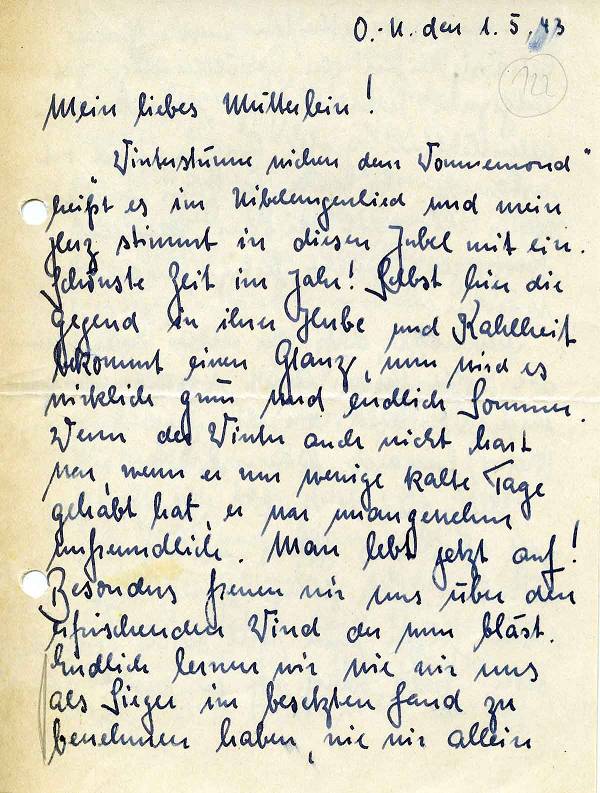 O.-U. den 1.5.43
122
Mein liebes Mütterlein!
"Winterstürme wichen dem Wonnemond"
heißt es im Nibelungenlied und mein
Herz stimmt in diesen Jubel mit ein.
Schönste Zeit im Jahr! Selbst hier die
Gegend in ihrer Herbe und Kahlheit
bekommt einen Glanz, nun wird es
wirklich grün und endlich Sommer.
Wenn der Winter auch nicht hart
war, wenn er nur wenige kalte Tage
gehabt hat, er war unangenehm
unfreundlich. Man lebt jetzt auf!
Besonders freuen wir uns über den
erfrischenden Wind der nun bläst.
Endlich lernen wir wie wir uns
als Sieger im besetzten Land zu
benehmen haben, wie wir allein